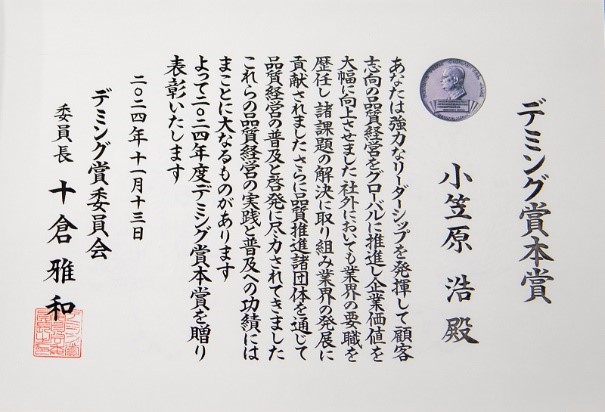 デミング賞本賞
小笠原 浩 殿
あなたは強力なリーダーシップを発揮して顧客
志向の品質経営をグローバルに推進し企業価値を
大幅に向上させました社外においても業界の要職を
歴任し諸課題の解決に取り組み業界の発展に
貢献されましたさらに品質推進諸団体を通じて
品質経営の普及と啓発に尽力されてきました
これらの品質経営の実践と普及への功績には
まことに大なるものがあります
よって二〇二四年度デミング賞本賞を贈り
表彰いたします
二〇二四年十一月十三日
デミング賞委員会
委員長 十倉雅和